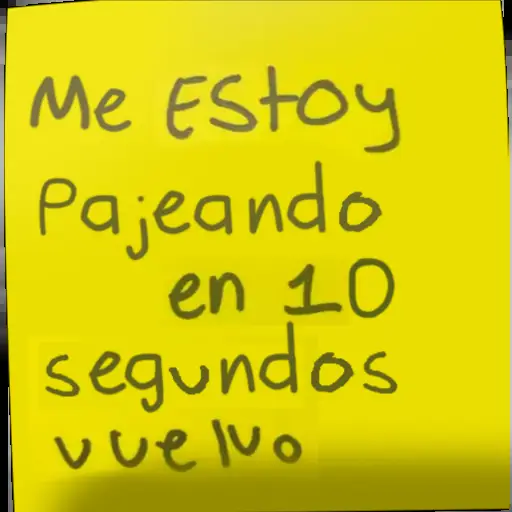 Me EStoy
Pajeando
en 10
segundos
vuelvo